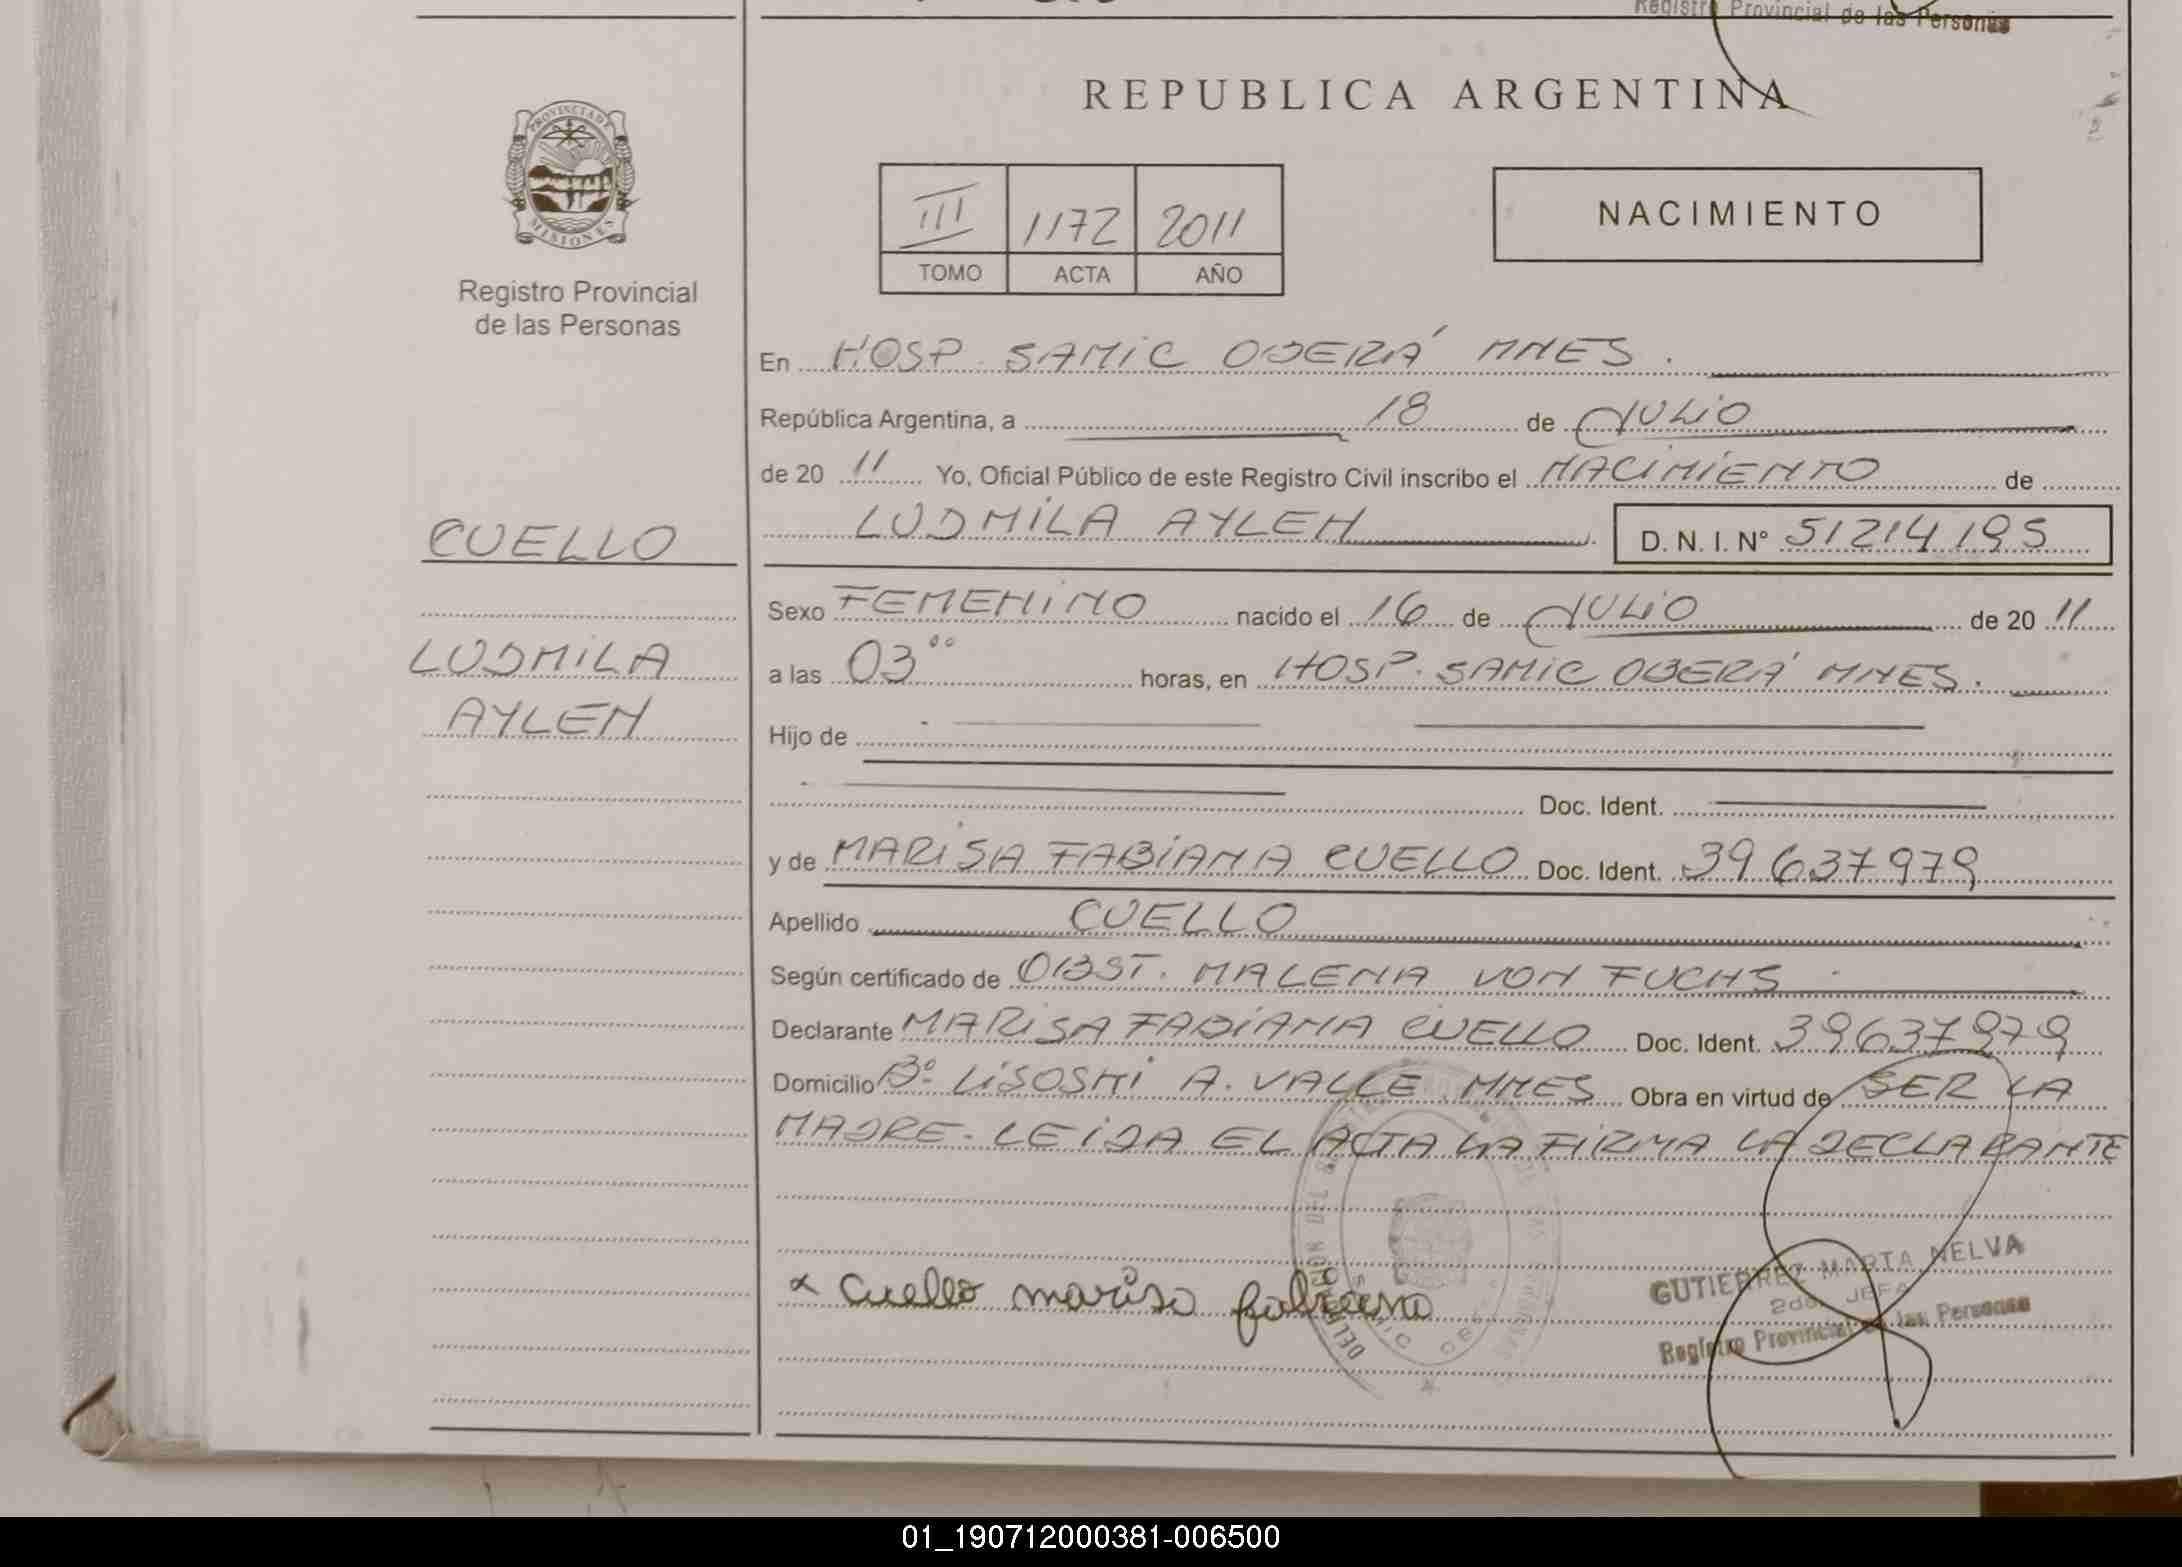 Registro Provincial de las Personas
REPUBLICA ARGENTINA
PROVINCIA DE
MISIONES
Registro Provincial
de las Personas
III 1172 2011
TOMO ACTA AÑO
NACIMIENTO
En HOSP. SAMIC OBERÁ MNES.
República Argentina, a 18 de JULIO
de 20 11 Yo, Oficial Público de este Registro Civil inscribo el NACIMIENTO de
LUDMILA AYLEN D. N. I. N° 51214195
CUELLO
LUDMILA
AYLEN
Sexo FEMENINO nacido el 16 de JULIO de 20 11
a las 03°° horas, en HOSP. SAMIC OBERÁ MNES.
Hijo de
Doc. Ident.
y de MARISA FABIANA CUELLO Doc. Ident. 39637979
Apellido CUELLO
Según certificado de OBST. MALENA VON FUCHS
Declarante MARISA FABIANA CUELLO Doc. Ident. 39637979
Domicilio B° LISOSKI A. VALLE MNES Obra en virtud de SER LA
MADRE. LEIDA EL ACTA LA FIRMA LA DECLARANTE
x Cuello marisa fabiana
GUTIERREZ MARTA NELVA
2da. JEFA
Registro Provincial de las Personas
01_190712000381-006500